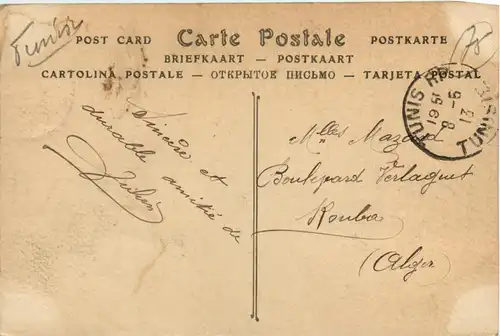 Tunisie
75
POST CARD Carte Postale POSTKARTE
BRIEFKAART — POSTKAART
CARTOLINA POSTALE — ОТКРЫТОЕ ПИСЬМО — TARJETA POSTAL
TUNIS
19 5
8 - 5
13
TUNIS
Sincère et
durable amitié de
Mlles Mazaud
Boulevard Verlaguet
Kouba
(Alger